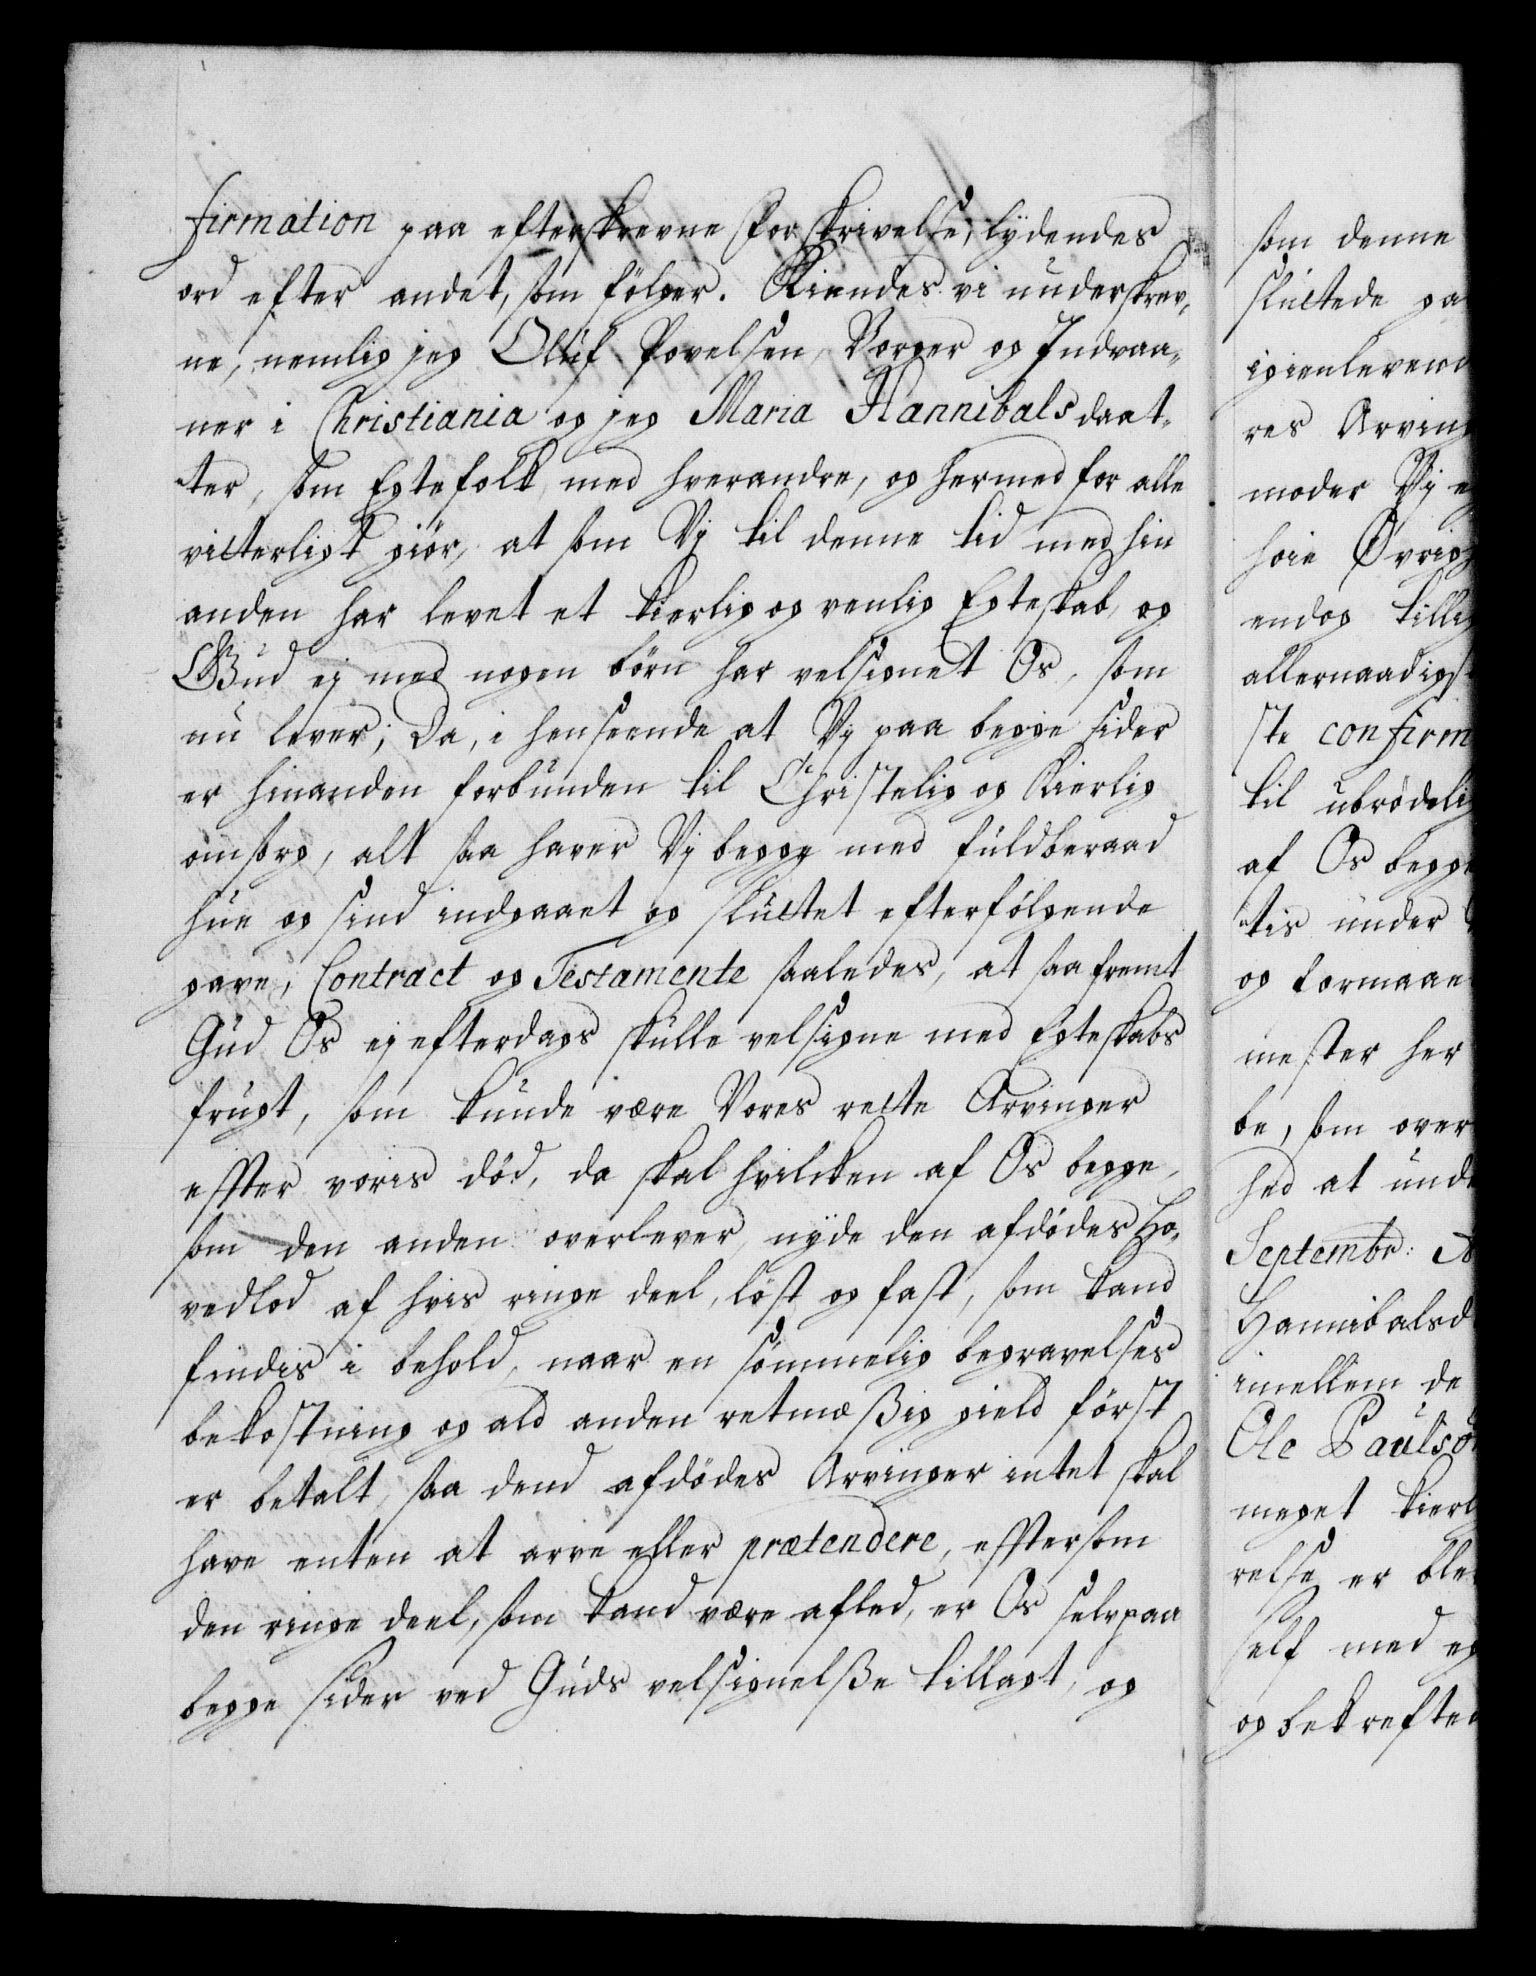 firmation paa efterskrevne Forskrivelse, lydendes
ord efter andet, som følger. Kiendes vi underskrev,
ne, nemlig jeg Oluf Povelsen, Borger og Indvaa,,
ner i Christiania og jeg Maria Hannibals daat,,
ter, som Egtefolk med hverandre, og hermed for alle
vitterligt giør, at som Vij til denne tid med hin
anden har levet et kierlig og venlig Egteskab, og
Gud ej med nogen børn har velsignet Os, som
nu lever; Da, i henseende at Vij paa begge sider
er hinanden forbunden til Christelig og Kierlig
omsorg, alt saa haver Vij begge med fuldberaad
hue og sind indgaaet og sluttet efterfølgende
gave, Contract og Testamente saaledes, at saafremt
Gud Os ej efterdags skulle velsigne med Egteskabs
frugt, som kunde være Vores rette Arvinger
effter voris død, da skal hvilcken af Os begge,
som den anden overlever, nyde den afdødes Ho,
vedlod af hvis ringe deel, løst og fast, som kand
findis i behold, naar en sømmelig begravelses
bekostning og ald anden retmæßig gield først
er betalt, saa dend afdødes Arvinger intet skal
have enten at arve eller prætendere, efftersom
den ringe deel, som kand være afled, er Os selv paa
begge sider ved Guds velsignelße tillagt, og
som denne
sluttede ga
igienlevend
res Arving
moder Vij e
høie Øvrig
endog tillig
allernaadigst
ste confirm
til ubrødeli
af Os begge
tis under
og formaae
mester her
be, som over
hed at unde
Septembr: A
Hannibalsd
imellem de
Ole Paulsø
meget kierl
relse er ble
self med eg
og bekrefte